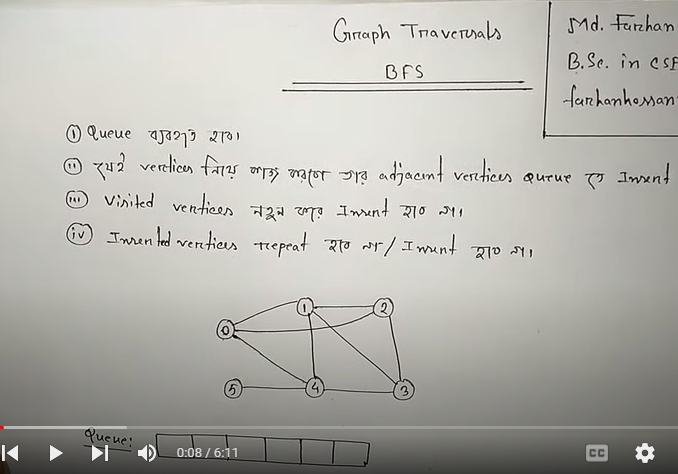 Graph Traversals
BFS
Md. Farhan
B.Sc. in CSE
farhanhossan
(i) Queue ব্যবহৃত হবে।
(ii) যেই vertices নিয়ে কাজ করবো তার adjacent vertices queue তে Insert
(iii) Visited vertices নতুন করে Insert হবে না।
(iv) Inserted vertices repeat হবে না / Insert হবে না।
1 2
0
5 4 3
Queue:
0:08 / 6:11
CC